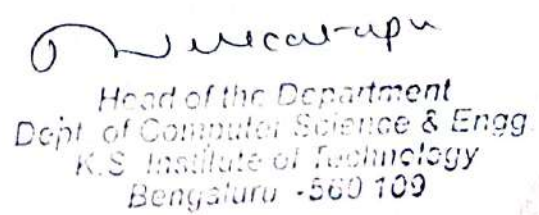 Head of the Department
Dept. of Computer Science & Engg
K.S. Institute of Technology
Bengaluru -560 109